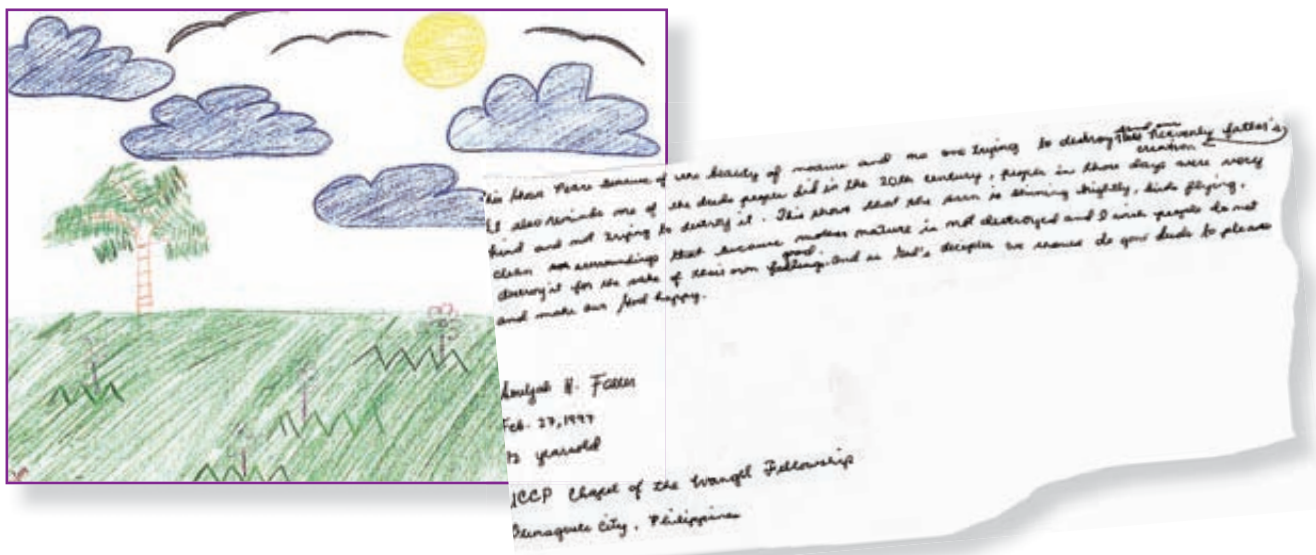 shows Peace because of the beauty of nature and no one trying to destroy and our Heavenly father's creation
It also reminds me of the deeds people did in the 20th century, people in those days were very
kind and not trying to destroy it. This shows that the sun is shinning brightly, birds flying,
clean surroundings that because mother nature is not destroyed and I wish people do not
destroy it for the sake of their own feelings. And as God's deciples we should do good deeds to please
and make our God happy.
H. Faller
Feb. 27, 1997
12 yearsold
UCCP Chapel of the Evangel Fellowship
Dumaguete City, Philippines